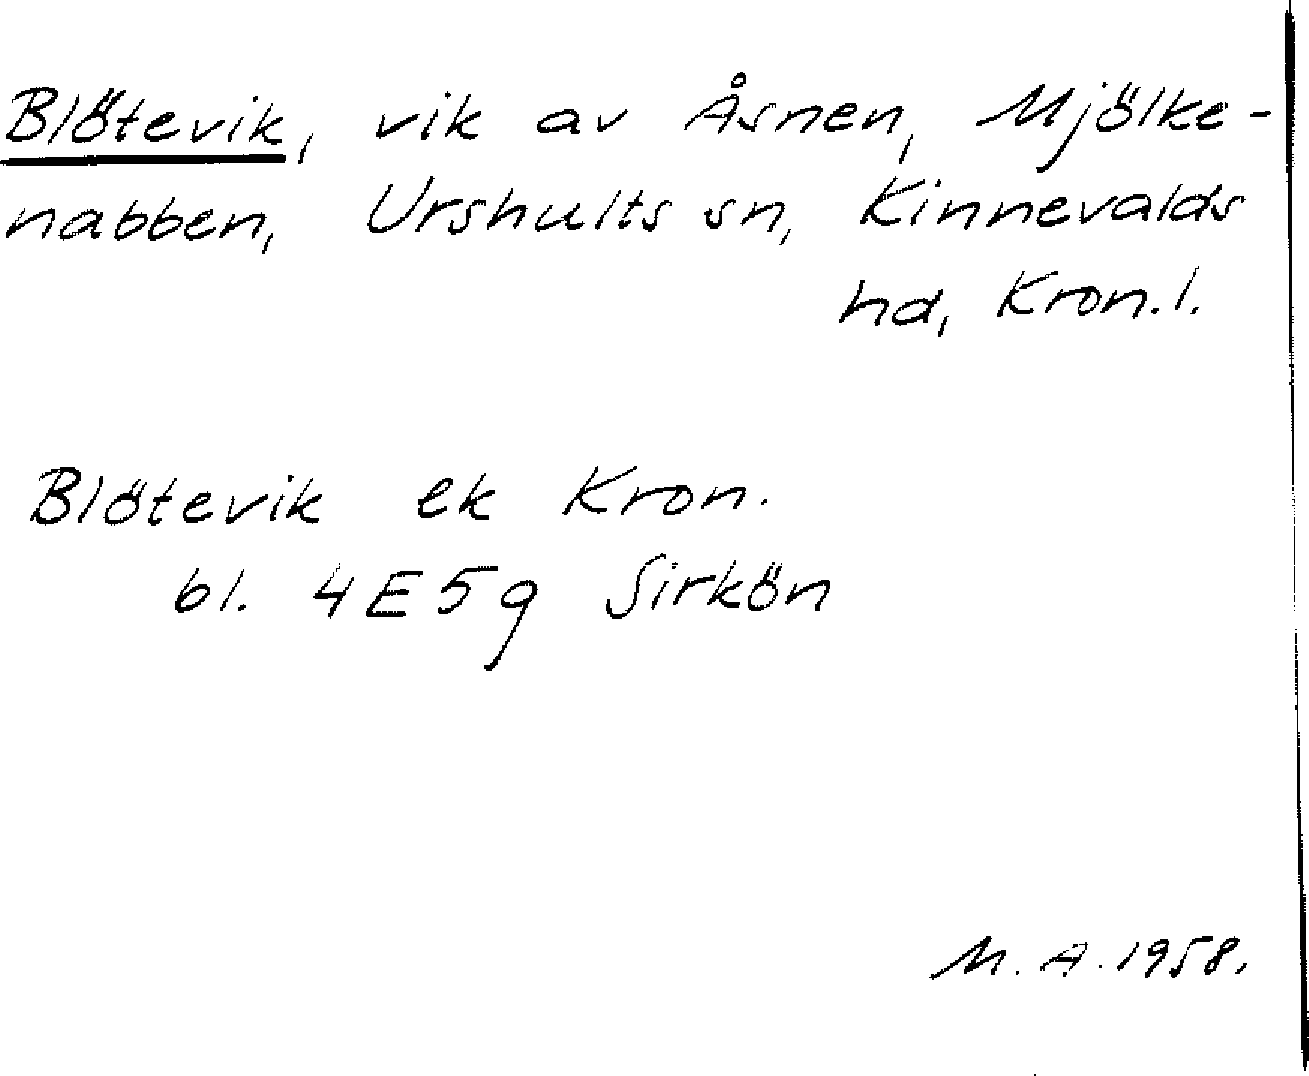 Blötevik, vik av Åsnen, Mjölke-
nabben, Urshults sn, Kinnevalds
hd, Kron.l.
Blötevik ek Kron.
bl. 4E5g Sirkön
M.A. 1958.